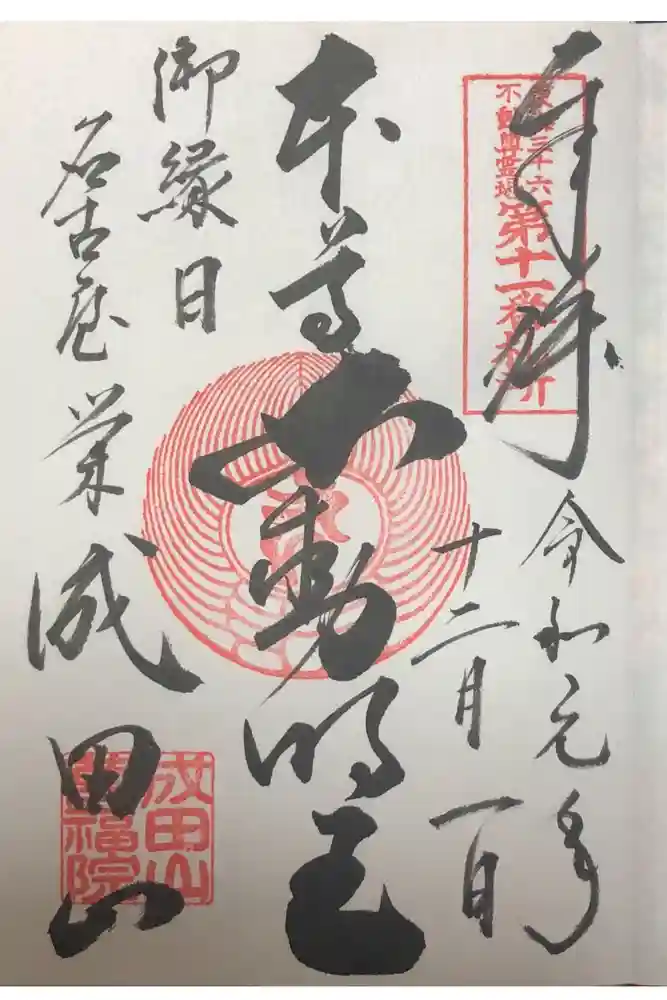 奉拝
東海三十六
不動尊霊場
第十一番札所
令和元年
十二月一日
本尊不動明王
御縁日
名古屋栄
成田山
成田山
萬福院